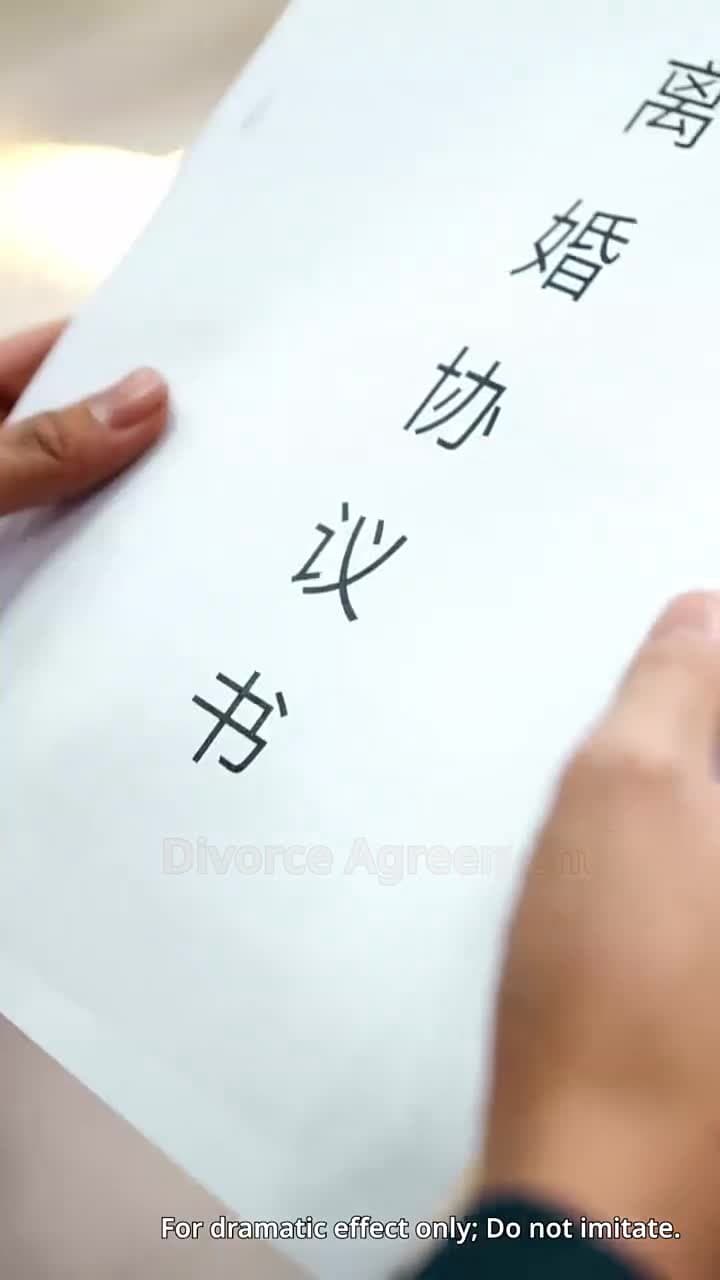 离婚协议书
Divorce Agreement
For dramatic effect only; Do not imitate.